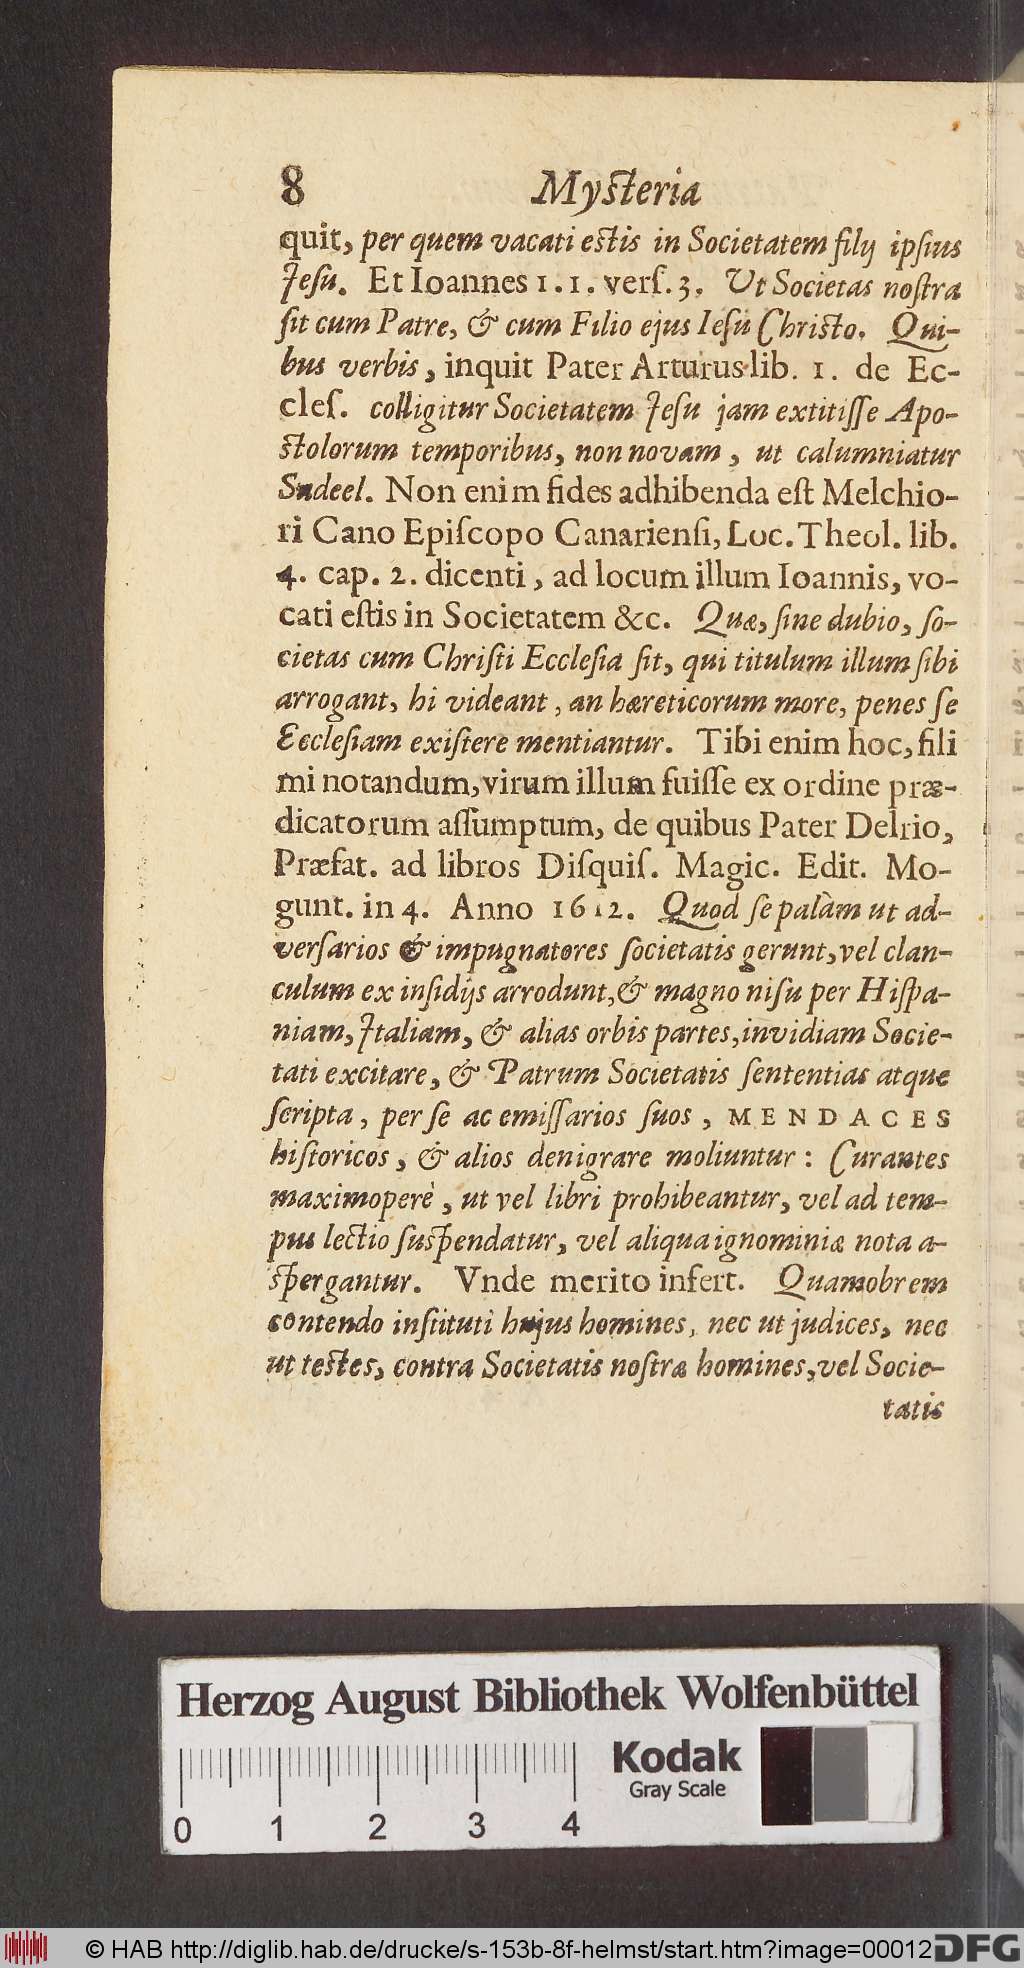 8 Mysteria
quit, per quem vacati estis in Societatem filij ipſius
Jeſu. Et Ioannes 1. 1. verſ. 3. Ut Societas noſtra
ſit cum Patre, & cum Filio ejus Ieſu Christo. Qui-
bus verbis, inquit Pater Arturus lib. 1. de Ec-
cleſ. colligitur Societatem Jeſu jam extitiſſe Apo-
stolorum temporibus, non novam, ut calumniatur
Sadeel. Non enim fides adhibenda eſt Melchio-
ri Cano Epiſcopo Canarienſi, Loc. Theol. lib.
4. cap. 2. dicenti, ad locum illum Ioannis, vo-
cati eſtis in Societatem &c. Quæ, ſine dubio, ſo-
cietas cum Chriſti Eccleſia ſit, qui titulum illum ſibi
arrogant, hi videant, an hæreticorum more, penes ſe
Eccleſiam exiſtere mentiantur. Tibi enim hoc, fili
mi notandum, virum illum fuiſſe ex ordine præ-
dicatorum aſſumptum, de quibus Pater Delrio,
Præfat. ad libros Diſquiſ. Magic. Edit. Mo-
gunt. in 4. Anno 1612. Quod ſe palàm ut ad-
verſarios & impugnatores ſocietatis gerunt, vel clan-
culum ex inſidijs arrodunt, & magno niſu per Hiſpa-
niam, Jtaliam, & alias orbis partes, invidiam Socie-
tati excitare, & Patrum Societatis ſententias atque
ſcripta, per ſe ac emiſſarios ſuos, MENDACES
hiſtoricos, & alios denigrare moliuntur: Curantes
maximoperè, ut vel libri prohibeantur, vel ad tem-
pus lectio ſuspendatur, vel aliqua ignominiæ nota a-
spergantur. Vnde merito infert. Quamobrem
contendo inſtituti hujus homines, nec ut judices, nec
ut testes, contra Societatis noſtræ homines, vel Socie-
tatis
Herzog August Bibliothek Wolfenbüttel
Kodak
Gray Scale
0 1 2 3 4
© HAB http://diglib.hab.de/drucke/s-153b-8f-helmst/start.htm?image=00012
DFG